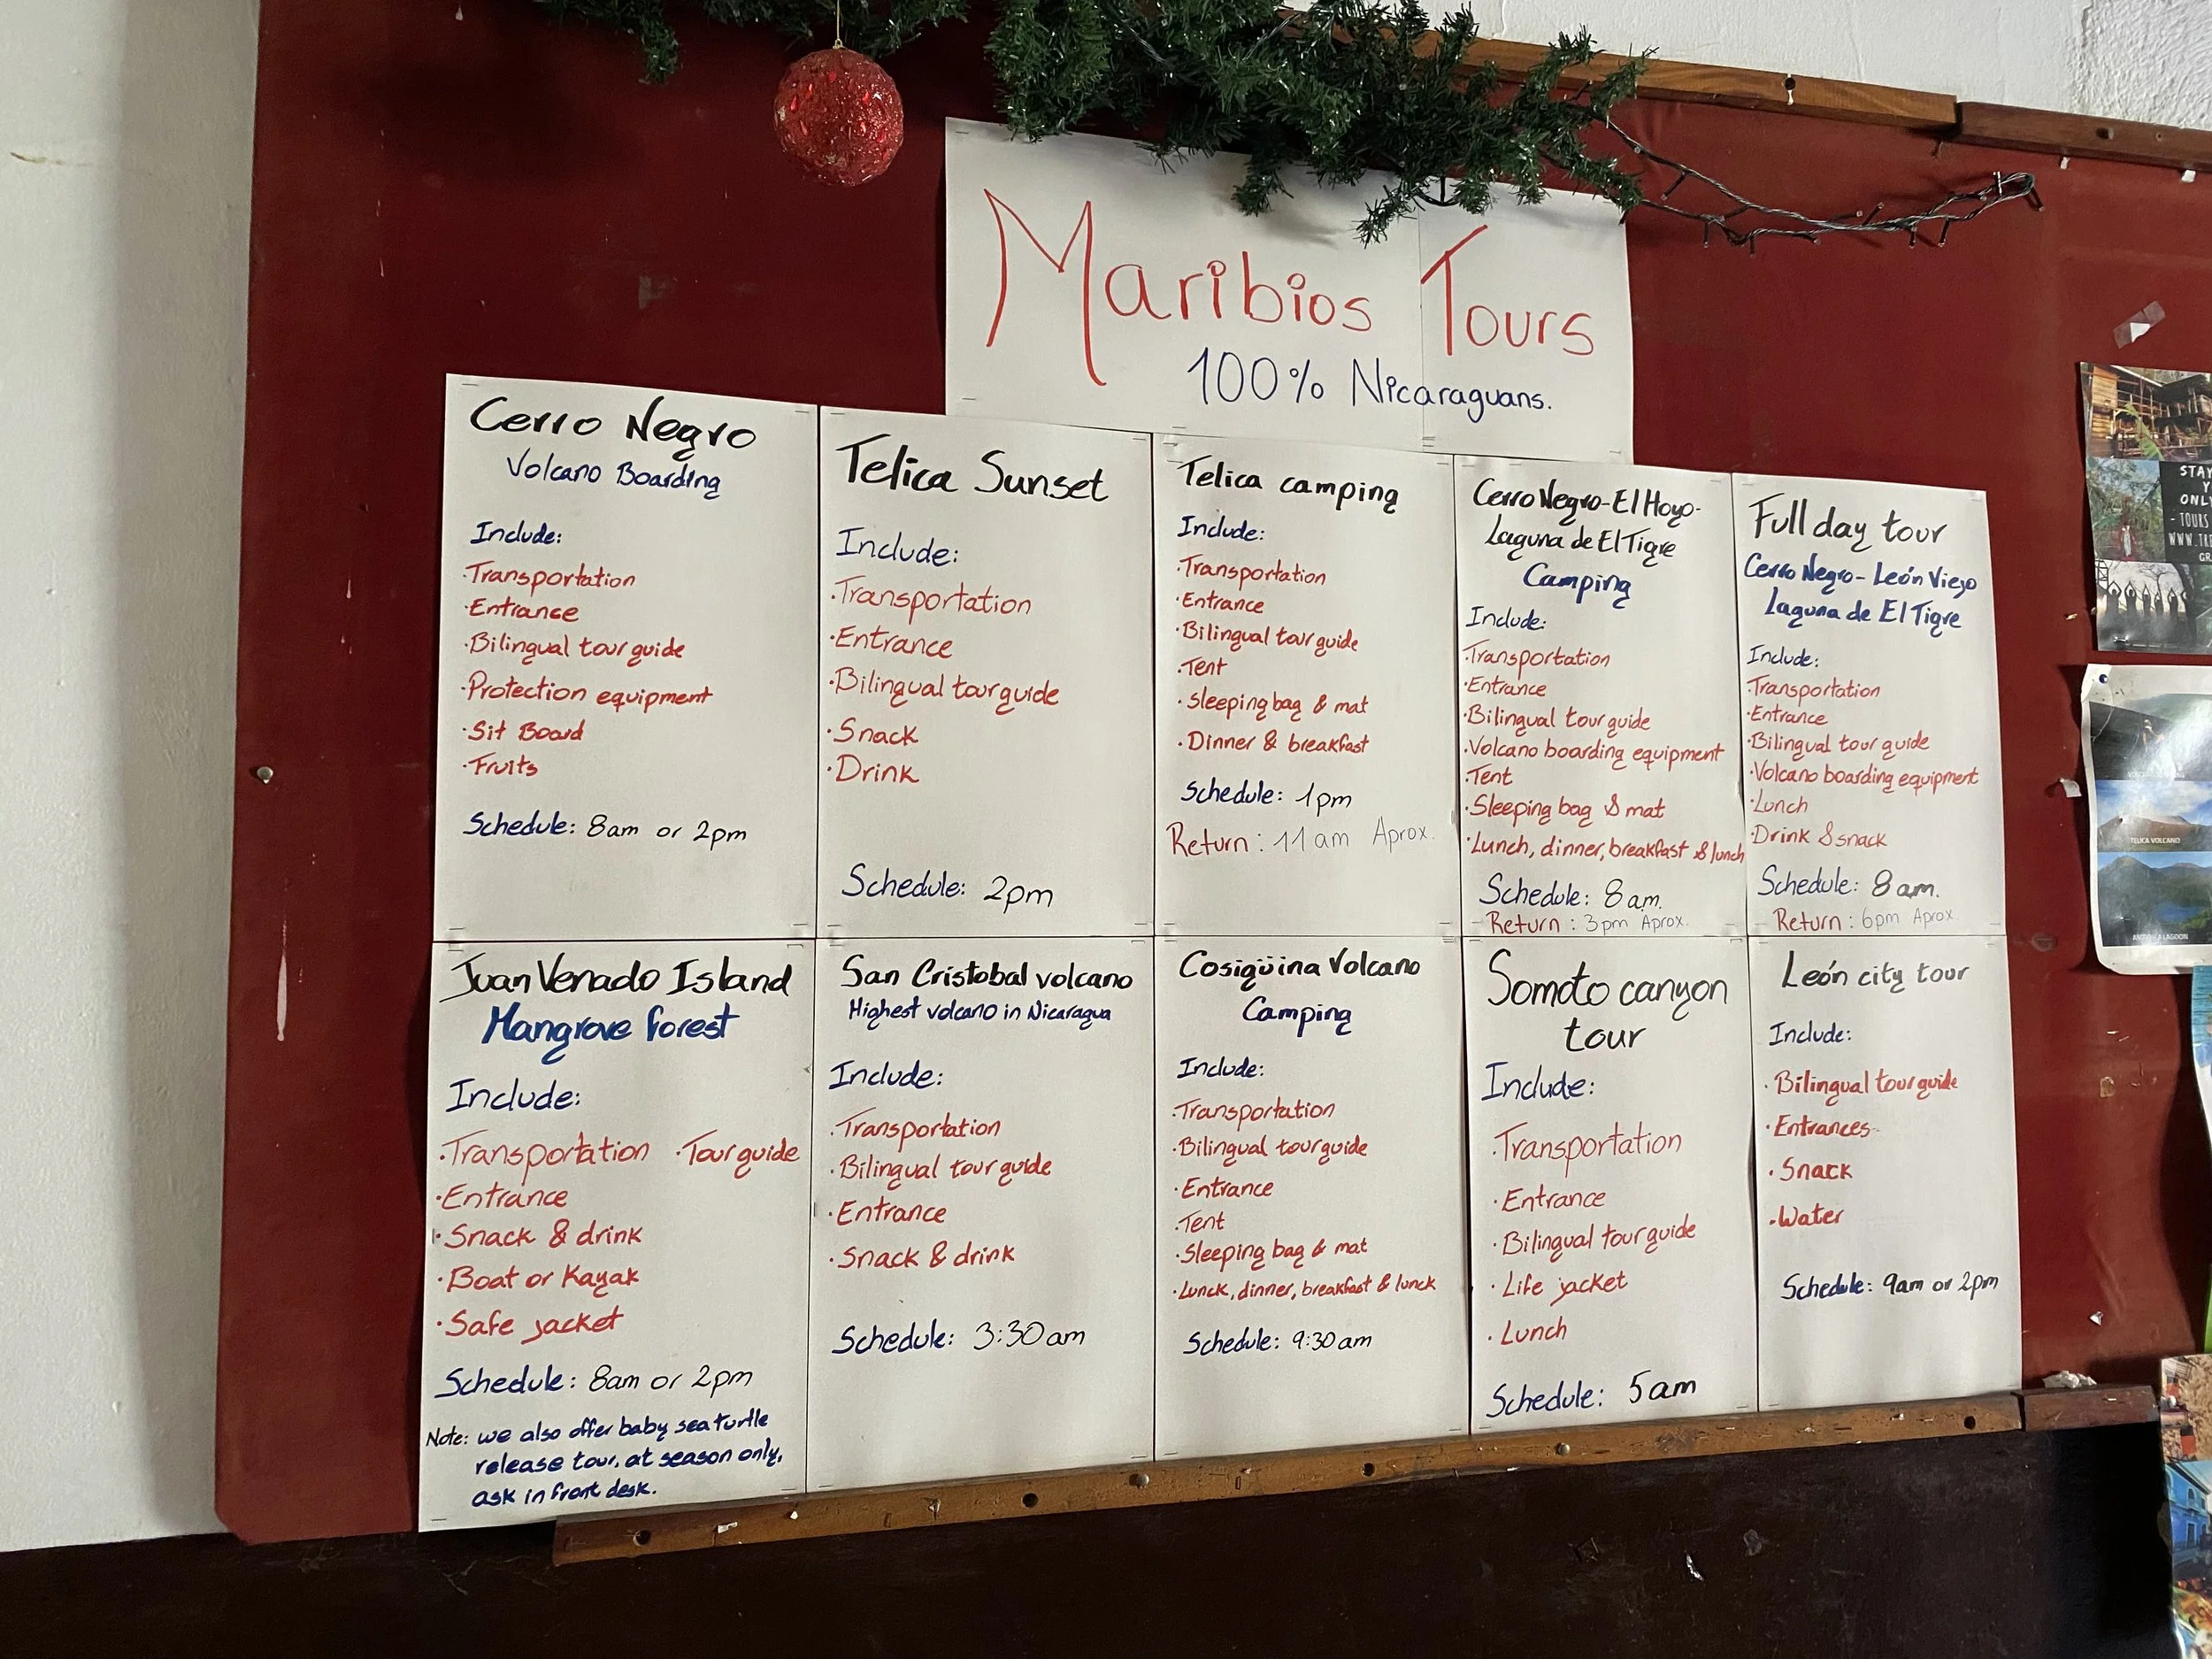 Maribios Tours
100% Nicaraguans.
Cerro Negro
Volcano Boarding
Include:
·Transportation
·Entrance
·Bilingual tour guide
·Protection equipment
·Sit Board
·Fruits
Schedule: 8am or 2pm
Telica Sunset
Include:
·Transportation
·Entrance
·Bilingual tour guide
·Snack
·Drink
Schedule: 2pm
Telica camping
Include:
·Transportation
·Entrance
·Bilingual tour guide
·Tent
·Sleeping bag & mat
·Dinner & breakfast
Schedule: 1pm
Return: 11am Aprox.
Cerro Negro-El Hoyo-
Laguna de El Tigre
Camping
Include:
·Transportation
·Entrance
·Bilingual tour guide
·Volcano boarding equipment
·Tent
·Sleeping bag & mat
·Lunch, dinner, breakfast & lunch
Schedule: 8am.
Return: 3pm Aprox.
Full day tour
Cerro Negro-León Viejo
Laguna de El Tigre
Include:
·Transportation
·Entrance
·Bilingual tour guide
·Volcano boarding equipment
·Lunch
·Drink & snack
Schedule: 8am.
Return: 6pm Aprox
Juan Venado Island
Mangrove forest
Include:
·Transportation ·Tour guide
·Entrance
·Snack & drink
·Boat or Kayak
·Safe jacket
Schedule: 8am or 2pm
Note: we also offer baby sea turtle
release tour, at season only,
ask in front desk.
San Cristobal volcano
Highest volcano in Nicaragua
Include:
·Transportation
·Bilingual tour guide
·Entrance
·Snack & drink
Schedule: 3:30am
Cosigüina Volcano
Camping
Include:
·Transportation
·Bilingual tour guide
·Entrance
·Tent
·Sleeping bag & mat
·Lunck, dinner, breakfast & lunck
Schedule: 9:30am
Somoto canyon
tour
Include:
·Transportation
·Entrance
·Bilingual tour guide
·Life jacket
·Lunch
Schedule: 5am
León city tour
Include:
·Bilingual tour guide
·Entrances
·Snack
·Water
Schedule: 9am or 2pm
STAY
Y
ONL
- TOURS
WWW.TRE
GR
TELICA VOLCANO
LAGOON